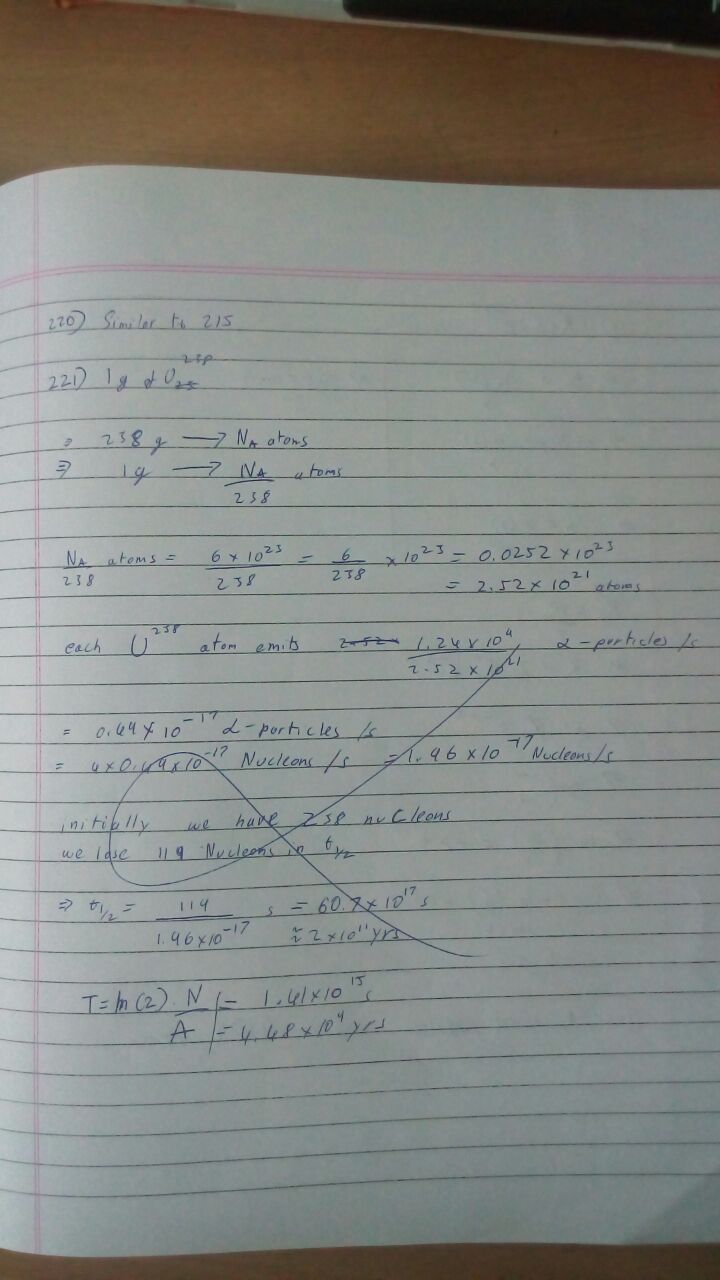 220) Similar to 215
221) 1g of U²³⁸
∘ 238 g → N_A atoms
⇒ 1g → N_A/238 atoms
N_A/238 atoms = 6 × 10²³/238 = 6/238 × 10²³ = 0.0252 × 10²³
= 2.52 × 10²¹ atoms
each U²³⁸ atom emits 2.52× 1.24 × 10⁴/2.52 × 10²¹ α-particles /s
= 0.49 × 10⁻¹⁷ α-particles /s
= 4 × 0.49 × 10⁻¹⁷ Nucleons /s = 1.96 × 10⁻¹⁷ Nucleons/s
initially we have 238 nucleons
we lose 119 Nucleons in t₁/₂
⇒ t₁/₂ = 119/1.96×10⁻¹⁷ s = 60.7 × 10¹⁷ s
≈ 2 × 10¹¹ yrs
T = ln(2) . N/A = 1.41 × 10¹⁵ s
= 4.48 × 10⁹ yrs